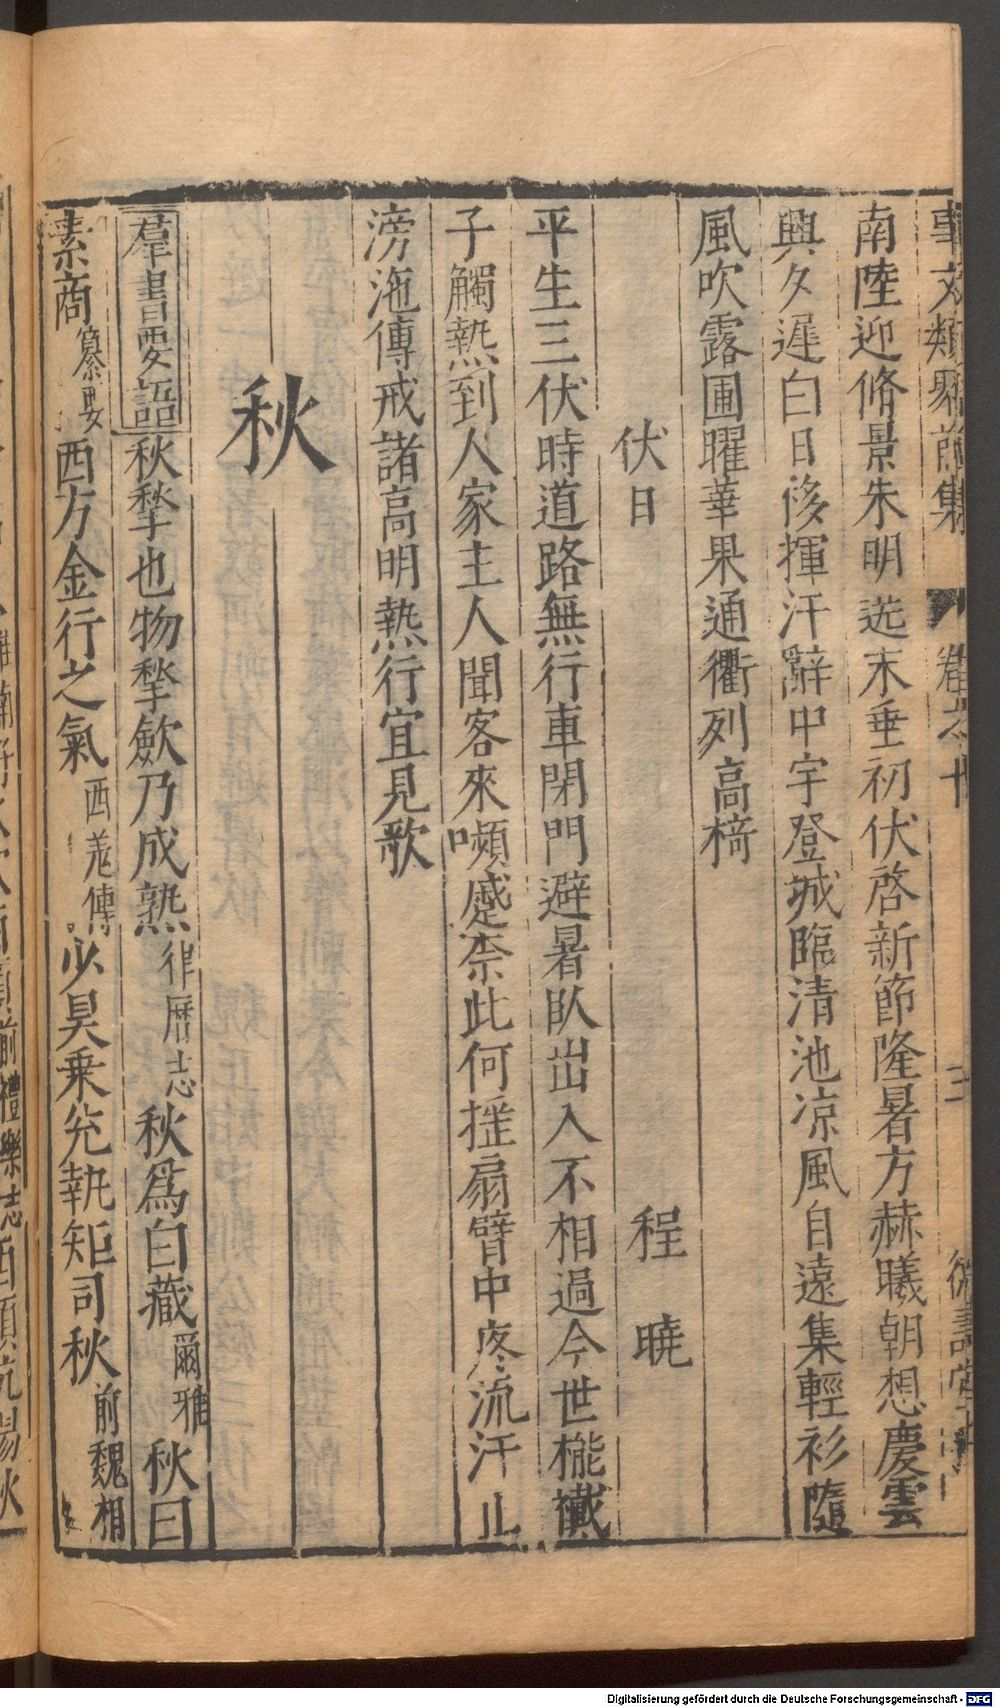 事文類聚前集 卷之十
南陸迎脩景朱明送末垂初伏啓新節隆暑方赫曦朝想慶雲
興夕遲白日移揮汗辭中宇登城臨清池凉風自遠集輕衫隨
風吹露圃曜華果通衢列高椅
伏日 程曉
平生三伏時道路無行車閉門避暑臥出入不相過今世㰖襶
子觸熱到人家主人聞客來嚬蹙柰此何揺扇臂中疼流汗止
滂沲傳戒諸高明熱行宜見歌
秋
羣書要語秋揫也物揫歛乃成熟律曆志秋爲白藏爾雅秋曰
素商纂要西方金行之氣西羗傳少昊乗兊執矩司秋前魏相
Digitalisierung gefördert durch die Deutsche Forschungsgemeinschaft - DFG